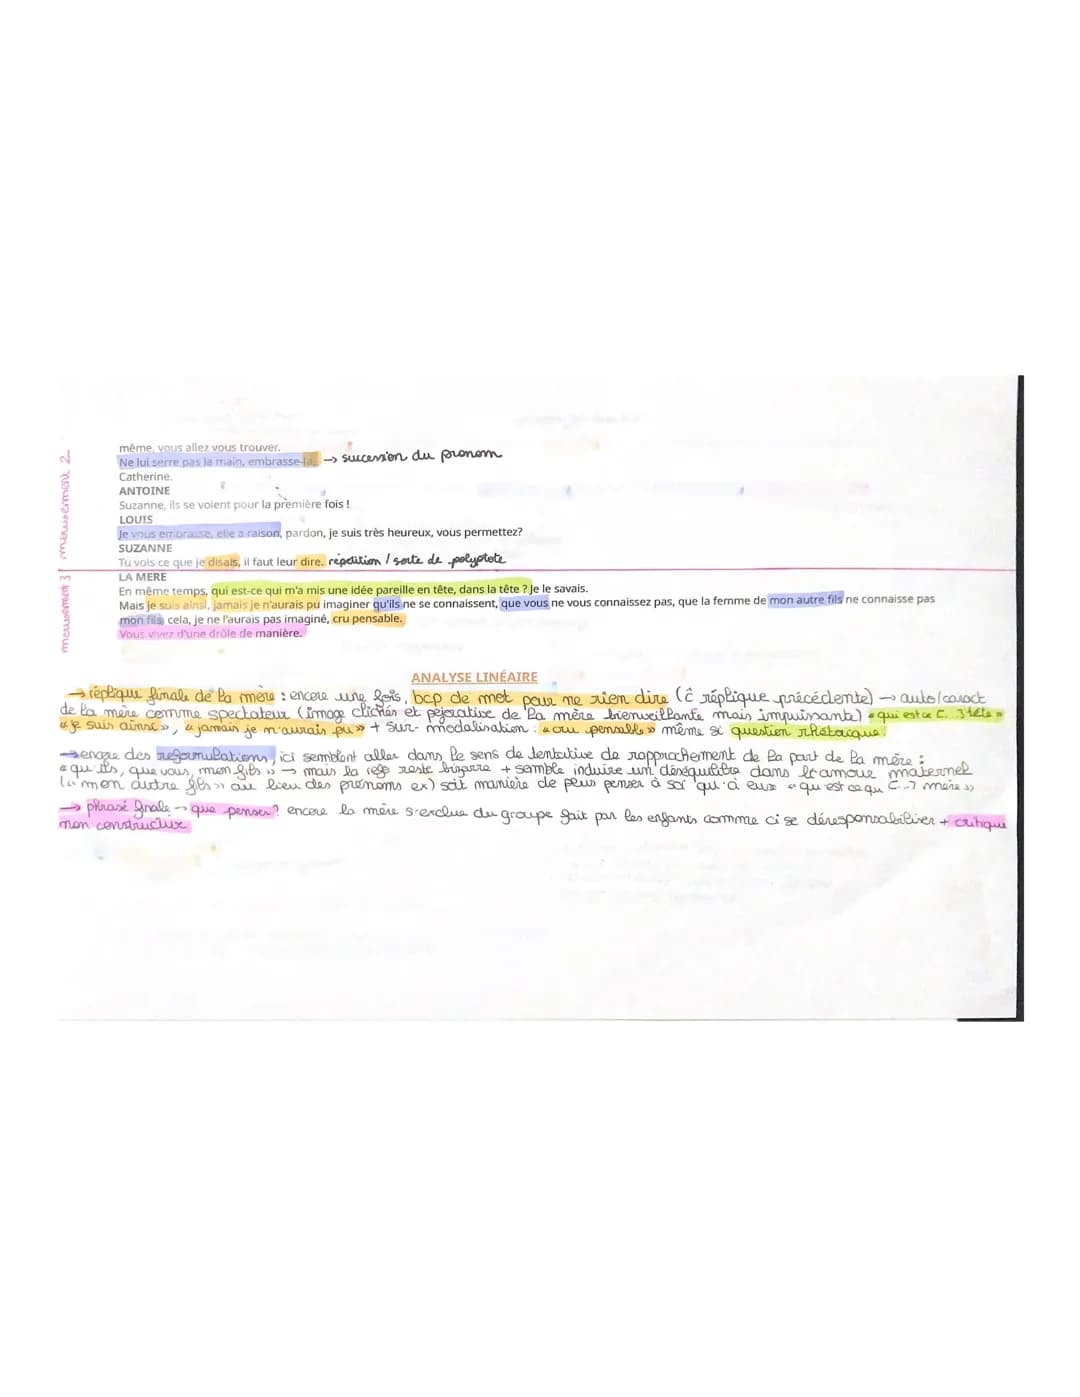 même, vous allez vous trouver.
Ne lui serre pas la main, embrasse-la. → succession du pronom
Catherine.
ANTOINE
Suzanne, ils se voient pour la première fois !
LOUIS
Je vous embrasse, elle a raison, pardon, je suis très heureux, vous permettez?
SUZANNE
Tu vois ce que je disais, il faut leur dire. répétition / sorte de polyptote
mouvement 2
mouvement 3
LA MERE
En même temps, qui est-ce qui m'a mis une idée pareille en tête, dans la tête ? Je le savais.
Mais je suis ainsi, jamais je n'aurais pu imaginer qu'ils ne se connaissent, que vous ne vous connaissez pas, que la femme de mon autre fils ne connaisse pas
mon fils, cela, je ne l'aurais pas imaginé, cru pensable.
Vous vivez d'une drôle de manière.
ANALYSE LINÉAIRE
→ réplique finale de la mère : encore une fois, bcp de mot pour ne rien dire (ĉ réplique précédente) → auto/caract
de la mère comme spectateur (image clichés et péjorative de la mère bienveillante mais impuissante) « qui est ce [...] tête »
« je suis ainsi », « jamais je n'aurais pu » + sur-modalisation : « cru pensable » même si question rhétorique.
→ encore des reformulations, ici semblent aller dans le sens de tentative de rapprochement de la part de la mère :
« qu'ils, que vous, mon fils » → mais la reste bizarre + semble induire un déséquilibre dans l'amour maternel
(« mon autre fils » au lieu des prénoms ex) soit manière de plus penser à soi qu'à eux « qu'est ce qu [...] mère »
→ phrase finale → que penser? encore la mère s'exclue du groupe fait par les enfants comme ci se déresponsabiliser + critique
non constructive